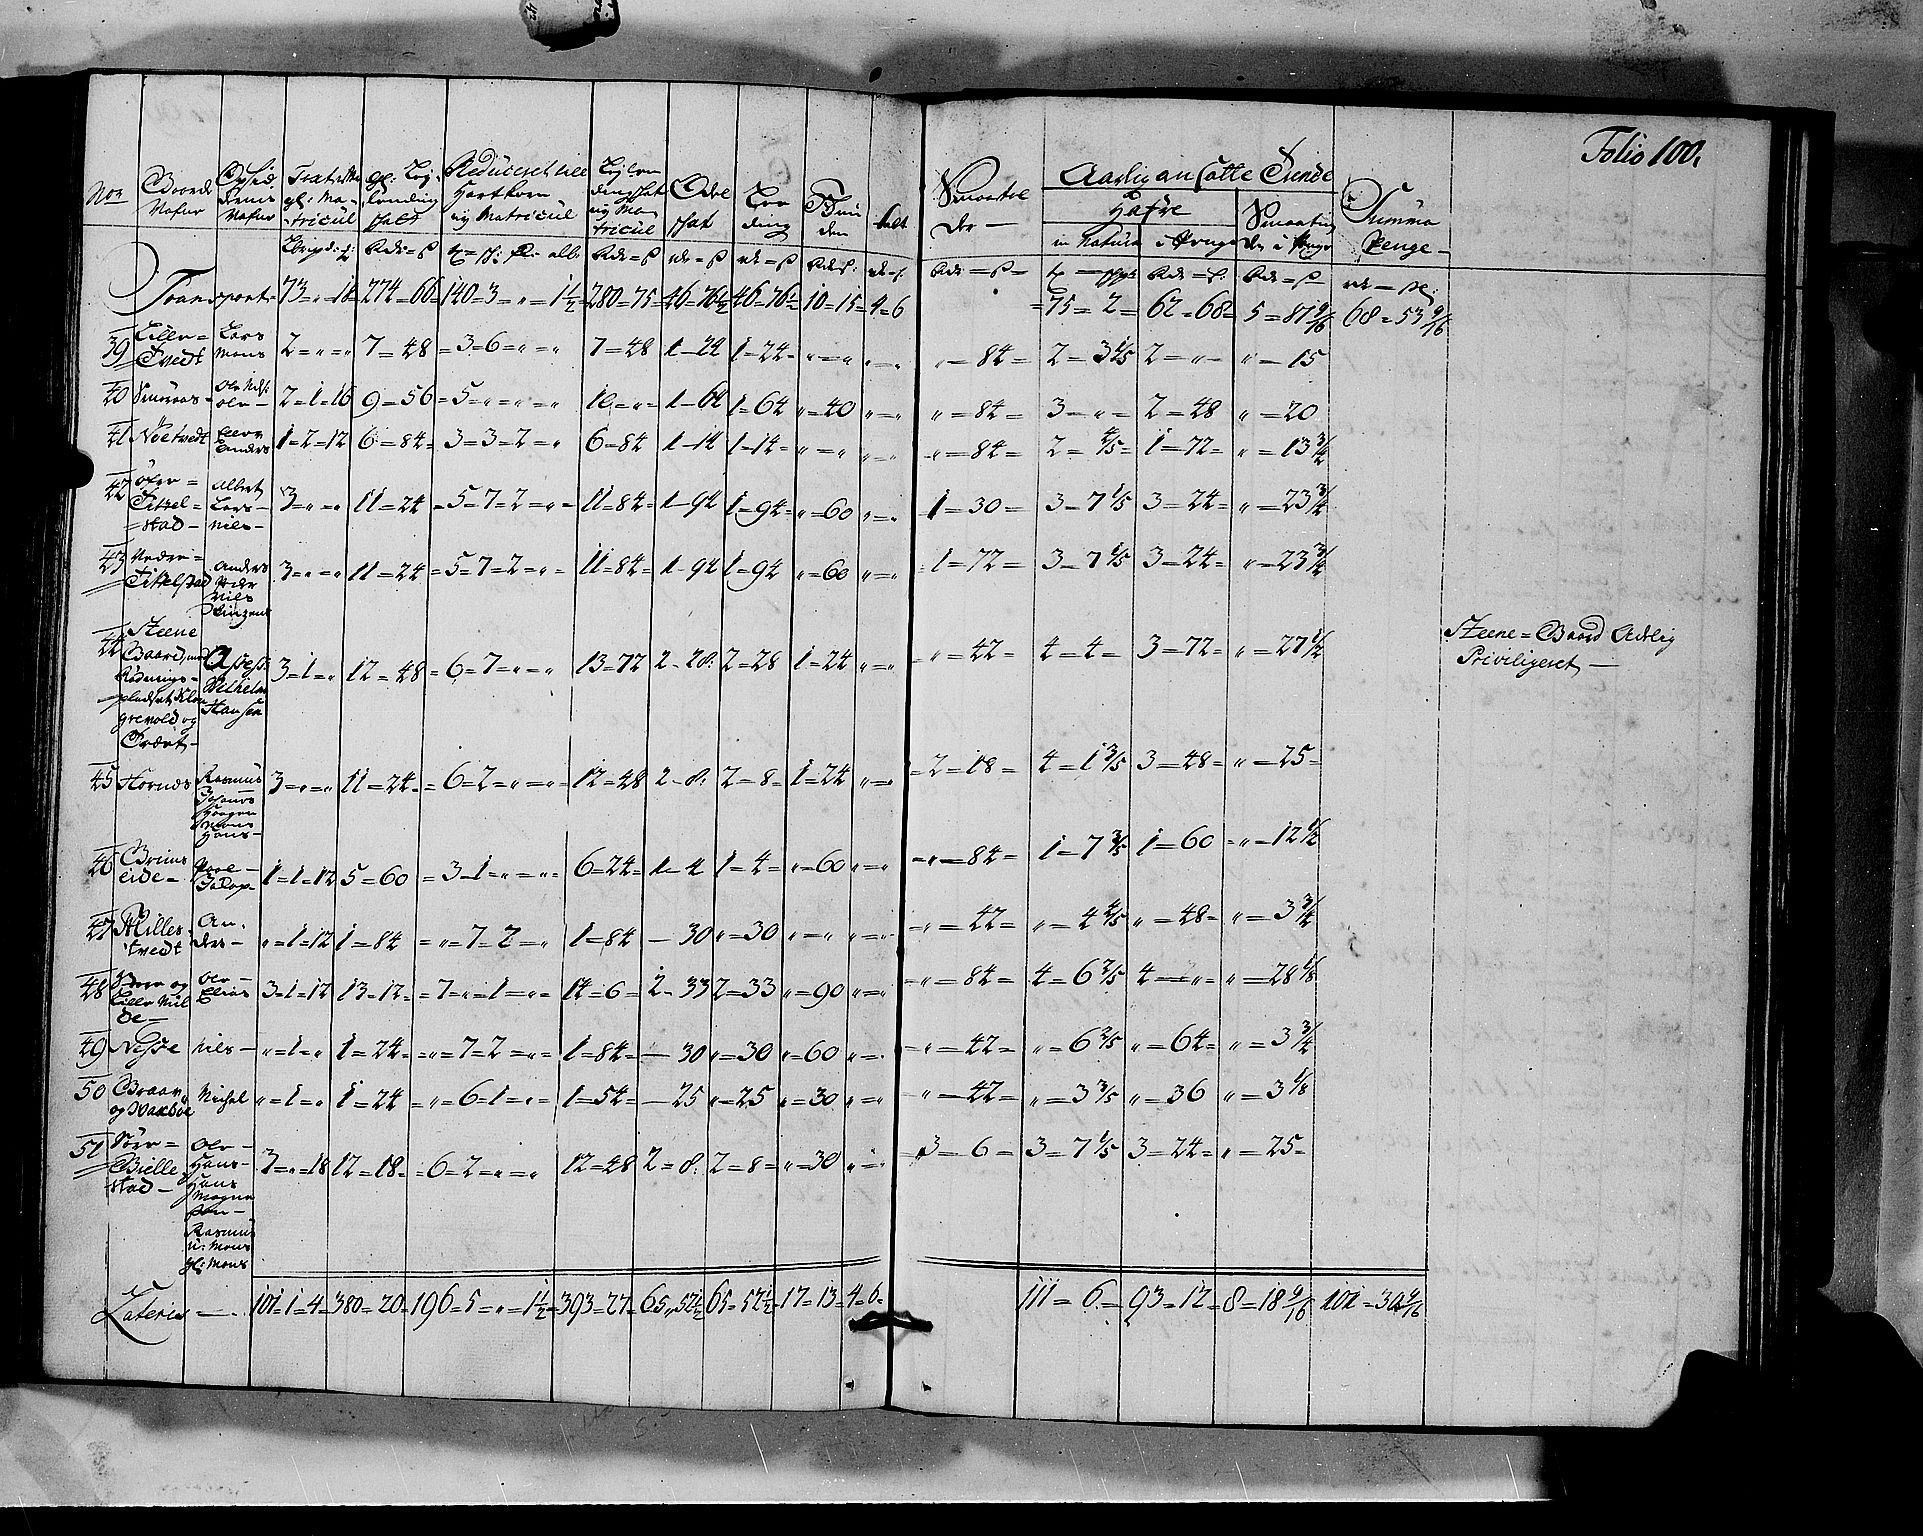 Folio 100.
Noe Gaards Nafne Opsid. dernis Nafne gl: Ma- tricul gl: Ley- lending Skatt Reduceret till Hartkorn ny Matricul Leylen dingsskat ny Ma tricul Odel skat ding Smaatal der — Aarlig ansatte Tiende Hafre in Natura i Penge Smaatien der i Penge Summa Penge —
Transport 73 = „ = 18 274 = 66 140 = 3 = „ = 1 1/2 280 = 75 46 = 76 1/2 46 = 76 1/2 10 = 15 4 = 6 75 = 2 = 62 = 68 = 5 = 87 9/16 68 = 53 9/16
39 Lille = Tvedt Lars Mons 2 = „ = „ 7 = 48 = 3 = 6 = „ = „ 7 = 48 1 = 24 1 = 24 = „ = „ „ = „ „ = 84 = 2 = 3 1/5 2 = „ „ = 15
40 Smøraas Ole Nels: Ole — 2 = 1 = 16 9 = 56 = 5 = „ = „ = „ 10 = „ 1 = 64 1 = 64 „ = 40 „ = „ „ = 84 = 3 = „ = 2 = 48 „ = 20
41 Nøetvedt Anders 1 = 2 = 12 6 = 84 = 3 = 3 = 2 = „ 6 = 84 1 = 14 1 = 14 = „ = „ „ = „ „ = 84 = 2 = 4/5 = 1 = 72 = „ = 13 3/4
42 Øfre = Tittel = stad = Albert Lars = Nils = 3 = „ = „ 11 = 24 = 5 = 7 = 2 = „ = 11 = 84 = 1 = 94 1 = 94 = „ = 60 „ = „ 1 = 30 = 3 = 7 1/5 3 = 24 = „ = 23 3/4
43 Nedre = Tittelstad Anders Peder Nils 3 = „ = „ 11 = 24 = 5 = 7 = 2 = „ = 11 = 84 = 1 = 94 1 = 94 „ = 60 „ = „ 1 = 72 = 3 = 7 1/5 3 = 24 = „ = 23 3/4
44 Steene Gaard, med Rødnings = pladset Klon grevold og Tvedt — Assess: Wilhelm Hansen 3 = 1 = „ 12 = 48 = 6 = 7 = „ = „ 13 = 72 2 = 28 2 = 28 1 = 24 „ = „ „ = 42 = 4 = 4 = 3 = 72 = „ = 27 1/2 Steene = Gaard Adelig Priviligeret —
45 Hornes Rasmus Johanes Haagen Mons Hans — 3 = „ = „ 11 = 24 = 6 = 2 = „ = „ = 12 = 48 2 = 8 2 = 8 = 1 = 24 „ = „ 2 = 18 = 4 = 1 3/5 3 = 48 = „ = 25 =
46 Grims eide = Poul — Jacop = 1 = 1 = 12 5 = 60 = 3 = 1 = „ = „ = 6 = 24 = 1 = 4 1 = 4 = „ = 60 „ = „ „ = 84 = 1 = 7 3/5 1 = 60 = „ = 12 1/2
47 Milles = tvedt An = des — „ = 1 = 12 1 = 84 = „ = 7 = 2 = „ 1 = 84 — 30 „ = 30 „ = „ „ = „ „ = 42 = „ = 4 4/5 „ = 48 = „ = 3 3/4
48 Store og Lille Mil de — Ole — Elias 3 = 1 = 12 13 = 12 = 7 = „ = 1 = „ = 14 = 6 = 2 = 33 2 = 33 „ = 90 „ = „ „ = 84 = 4 = 6 2/5 4 = „ = „ = 28 1/8
49 Nesse Nils — „ = 1 = „ 1 = 24 = „ = 7 = 2 = „ = 1 = 84 = — 30 „ = 30 „ = 60 „ = „ „ = 42 = „ = 6 2/5 „ = 64 = „ = 3 3/4
50 Graav og Vaxdøe Michel „ = 1 = „ 1 = 24 = „ = 6 = 1 = „ = 1 = 54 = — 25 „ = 25 „ = 30 „ = „ „ = 42 = „ = 3 3/5 „ = 36 „ = 3 1/8
51 Søre = Bielle stad — Ole — Hans = Hans Magne sen — Rasmus u: Mons gl: Mons 3 = „ = 18 12 = 18 = 6 = 2 = „ = „ 12 = 48 2 = 8 2 = 8 = „ = 30 „ = „ 3 = 6 = 3 = 7 1/5 3 = 24 = „ = 25 =
Lateris — 101 = 1 = 4 = 380 = 20 = 196 = 5 = „ = 1 1/2 = 393 = 27 = 65 „ 52 1/2 65 = 52 1/2 = 17 = 13 = 4 = 6 = 111 = 6 = 93 = 12 = 8 = 18 9/16 101 = 30 9/16